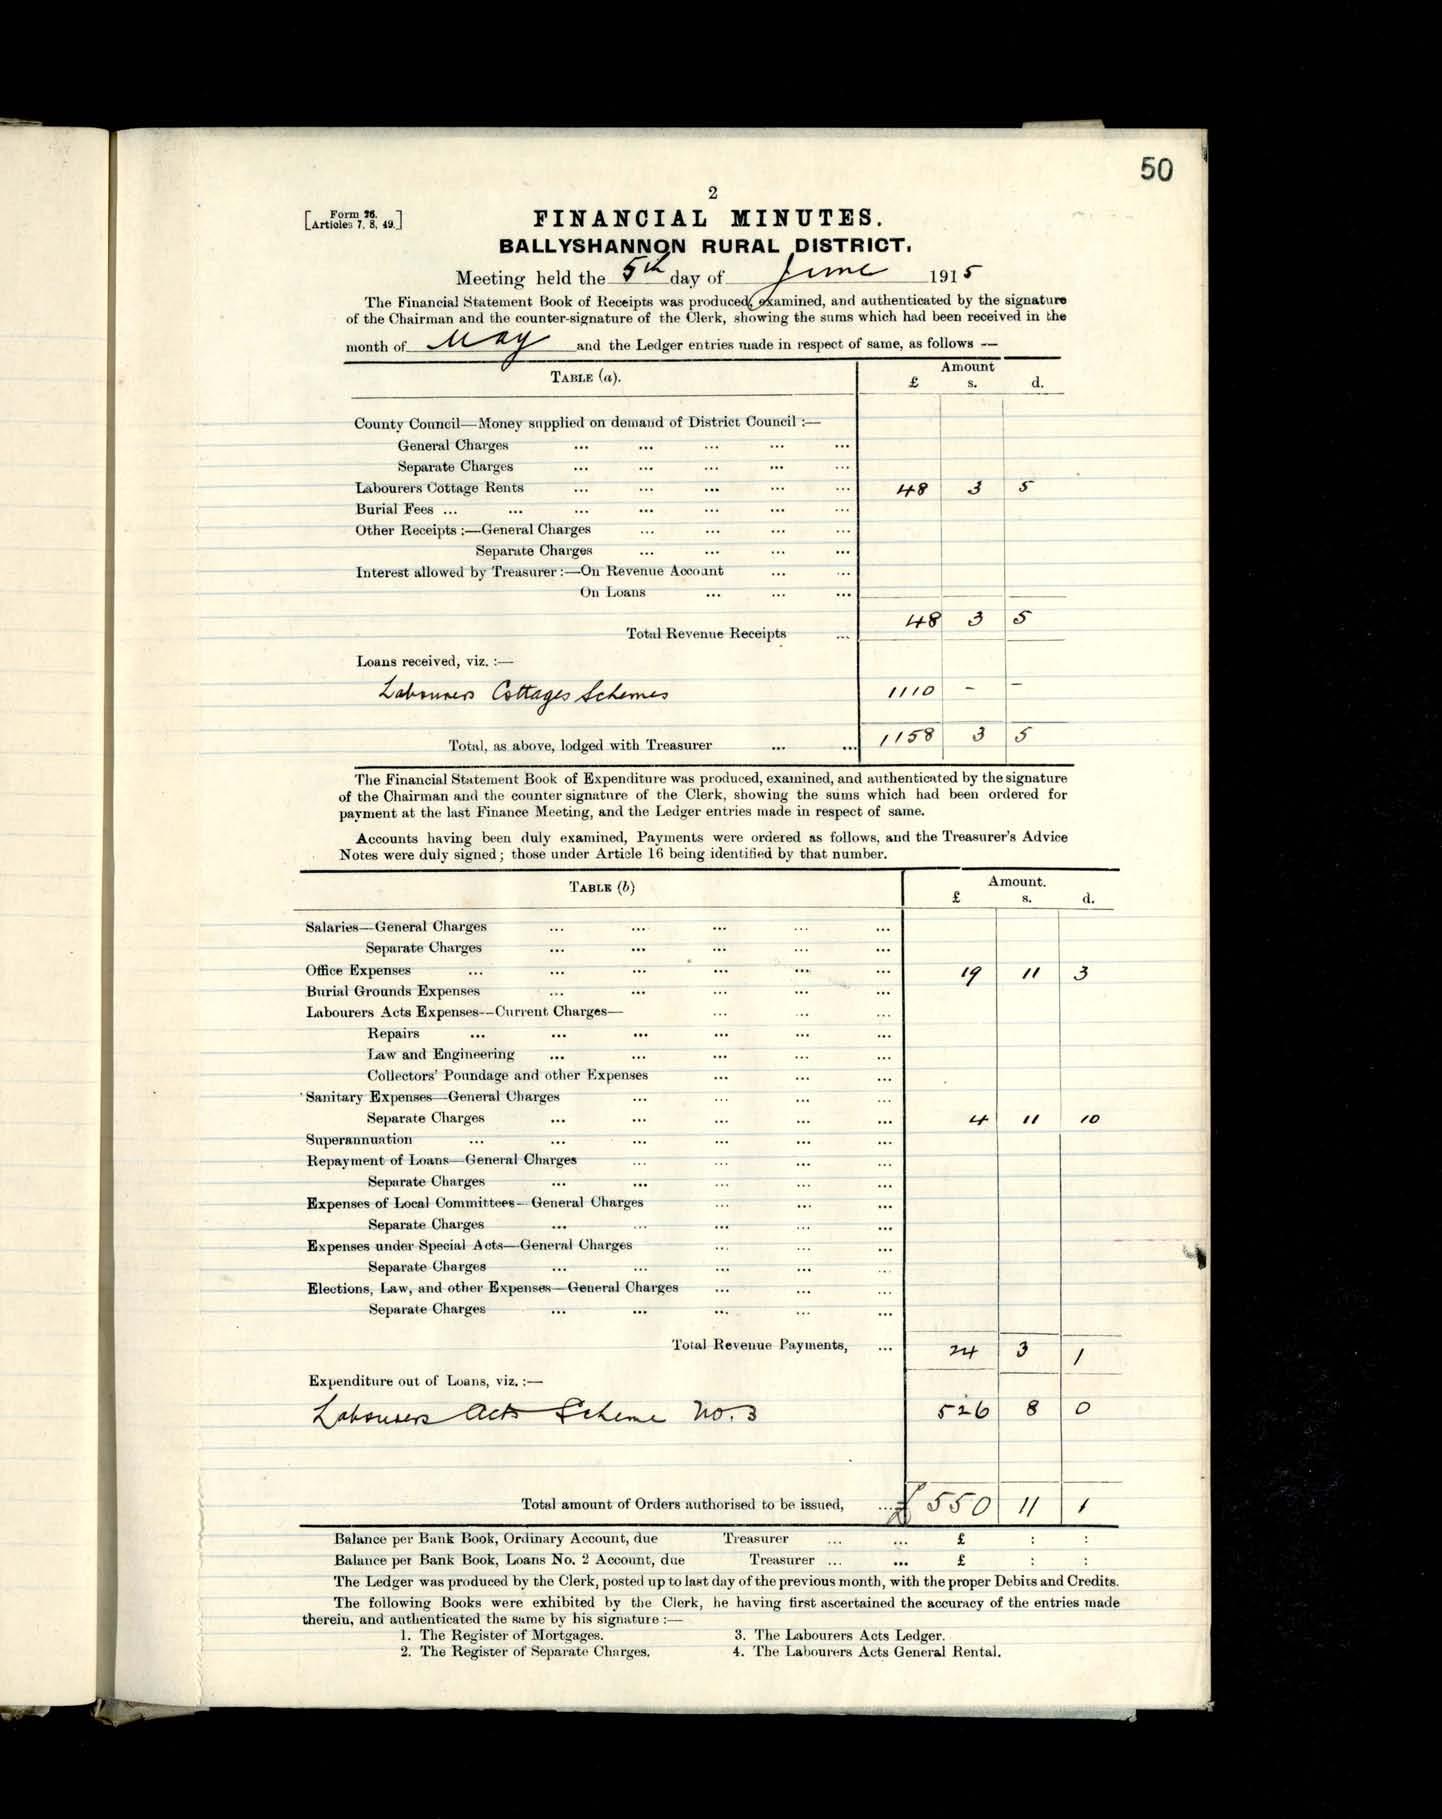 50
2
[Form 26.
Articles 7, 8, 49.]
FINANCIAL MINUTES.
BALLYSHANNON RURAL DISTRICT.
Meeting held the 5th day of June 1915
The Financial Statement Book of Receipts was produced, examined, and authenticated by the signature
of the Chairman and the counter-signature of the Clerk, showing the sums which had been received in the
month of May and the Ledger entries made in respect of same, as follows —
TABLE (a). Amount
£ s. d.
County Council—Money supplied on demand of District Council :—
General Charges ... ... ... ... ...
Separate Charges ... ... ... ... ...
Labourers Cottage Rents ... ... ... ... ... 48 3 5
Burial Fees ... ... ... ... ... ... ...
Other Receipts :—General Charges ... ... ... ...
Separate Charges ... ... ... ...
Interest allowed by Treasurer :—On Revenue Account ... ...
On Loans ... ... ...
Total Revenue Receipts ... 48 3 5
Loans received, viz. :—
Labourers Cottages Schemes 1110 - -
Total, as above, lodged with Treasurer ... ... 1158 3 5
The Financial Statement Book of Expenditure was produced, examined, and authenticated by the signature
of the Chairman and the counter signature of the Clerk, showing the sums which had been ordered for
payment at the last Finance Meeting, and the Ledger entries made in respect of same.
Accounts having been duly examined, Payments were ordered as follows, and the Treasurer's Advice
Notes were duly signed; those under Article 16 being identified by that number.
TABLE (b) Amount.
£ s. d.
Salaries—General Charges ... ... ... ... ...
Separate Charges ... ... ... ... ...
Office Expenses ... ... ... ... ... ... 19 11 3
Burial Grounds Expenses ... ... ... ... ...
Labourers Acts Expenses—Current Charges— ... ... ...
Repairs ... ... ... ... ... ...
Law and Engineering ... ... ... ... ...
Collectors' Poundage and other Expenses ... ... ...
Sanitary Expenses—General Charges ... ... ... ...
Separate Charges ... ... ... ... ... 4 11 10
Superannuation ... ... ... ... ... ...
Repayment of Loans—General Charges ... ... ... ...
Separate Charges ... ... ... ... ...
Expenses of Local Committees—General Charges ... ... ...
Separate Charges ... ... ... ... ...
Expenses under Special Acts—General Charges ... ... ...
Separate Charges ... ... ... ... ...
Elections, Law, and other Expenses—General Charges ... ... ...
Separate Charges ... ... ... ... ...
Total Revenue Payments, ... 24 3 1
Expenditure out of Loans, viz. :—
Labourers Acts Scheme No. 3 526 8 0
Total amount of Orders authorised to be issued, ... £ 550 11 1
Balance per Bank Book, Ordinary Account, due Treasurer ... ... £ : :
Balance per Bank Book, Loans No. 2 Account, due Treasurer ... ... £ : :
The Ledger was produced by the Clerk, posted up to last day of the previous month, with the proper Debits and Credits.
The following Books were exhibited by the Clerk, he having first ascertained the accuracy of the entries made
therein, and authenticated the same by his signature :—
1. The Register of Mortgages. 3. The Labourers Acts Ledger.
2. The Register of Separate Charges. 4. The Labourers Acts General Rental.